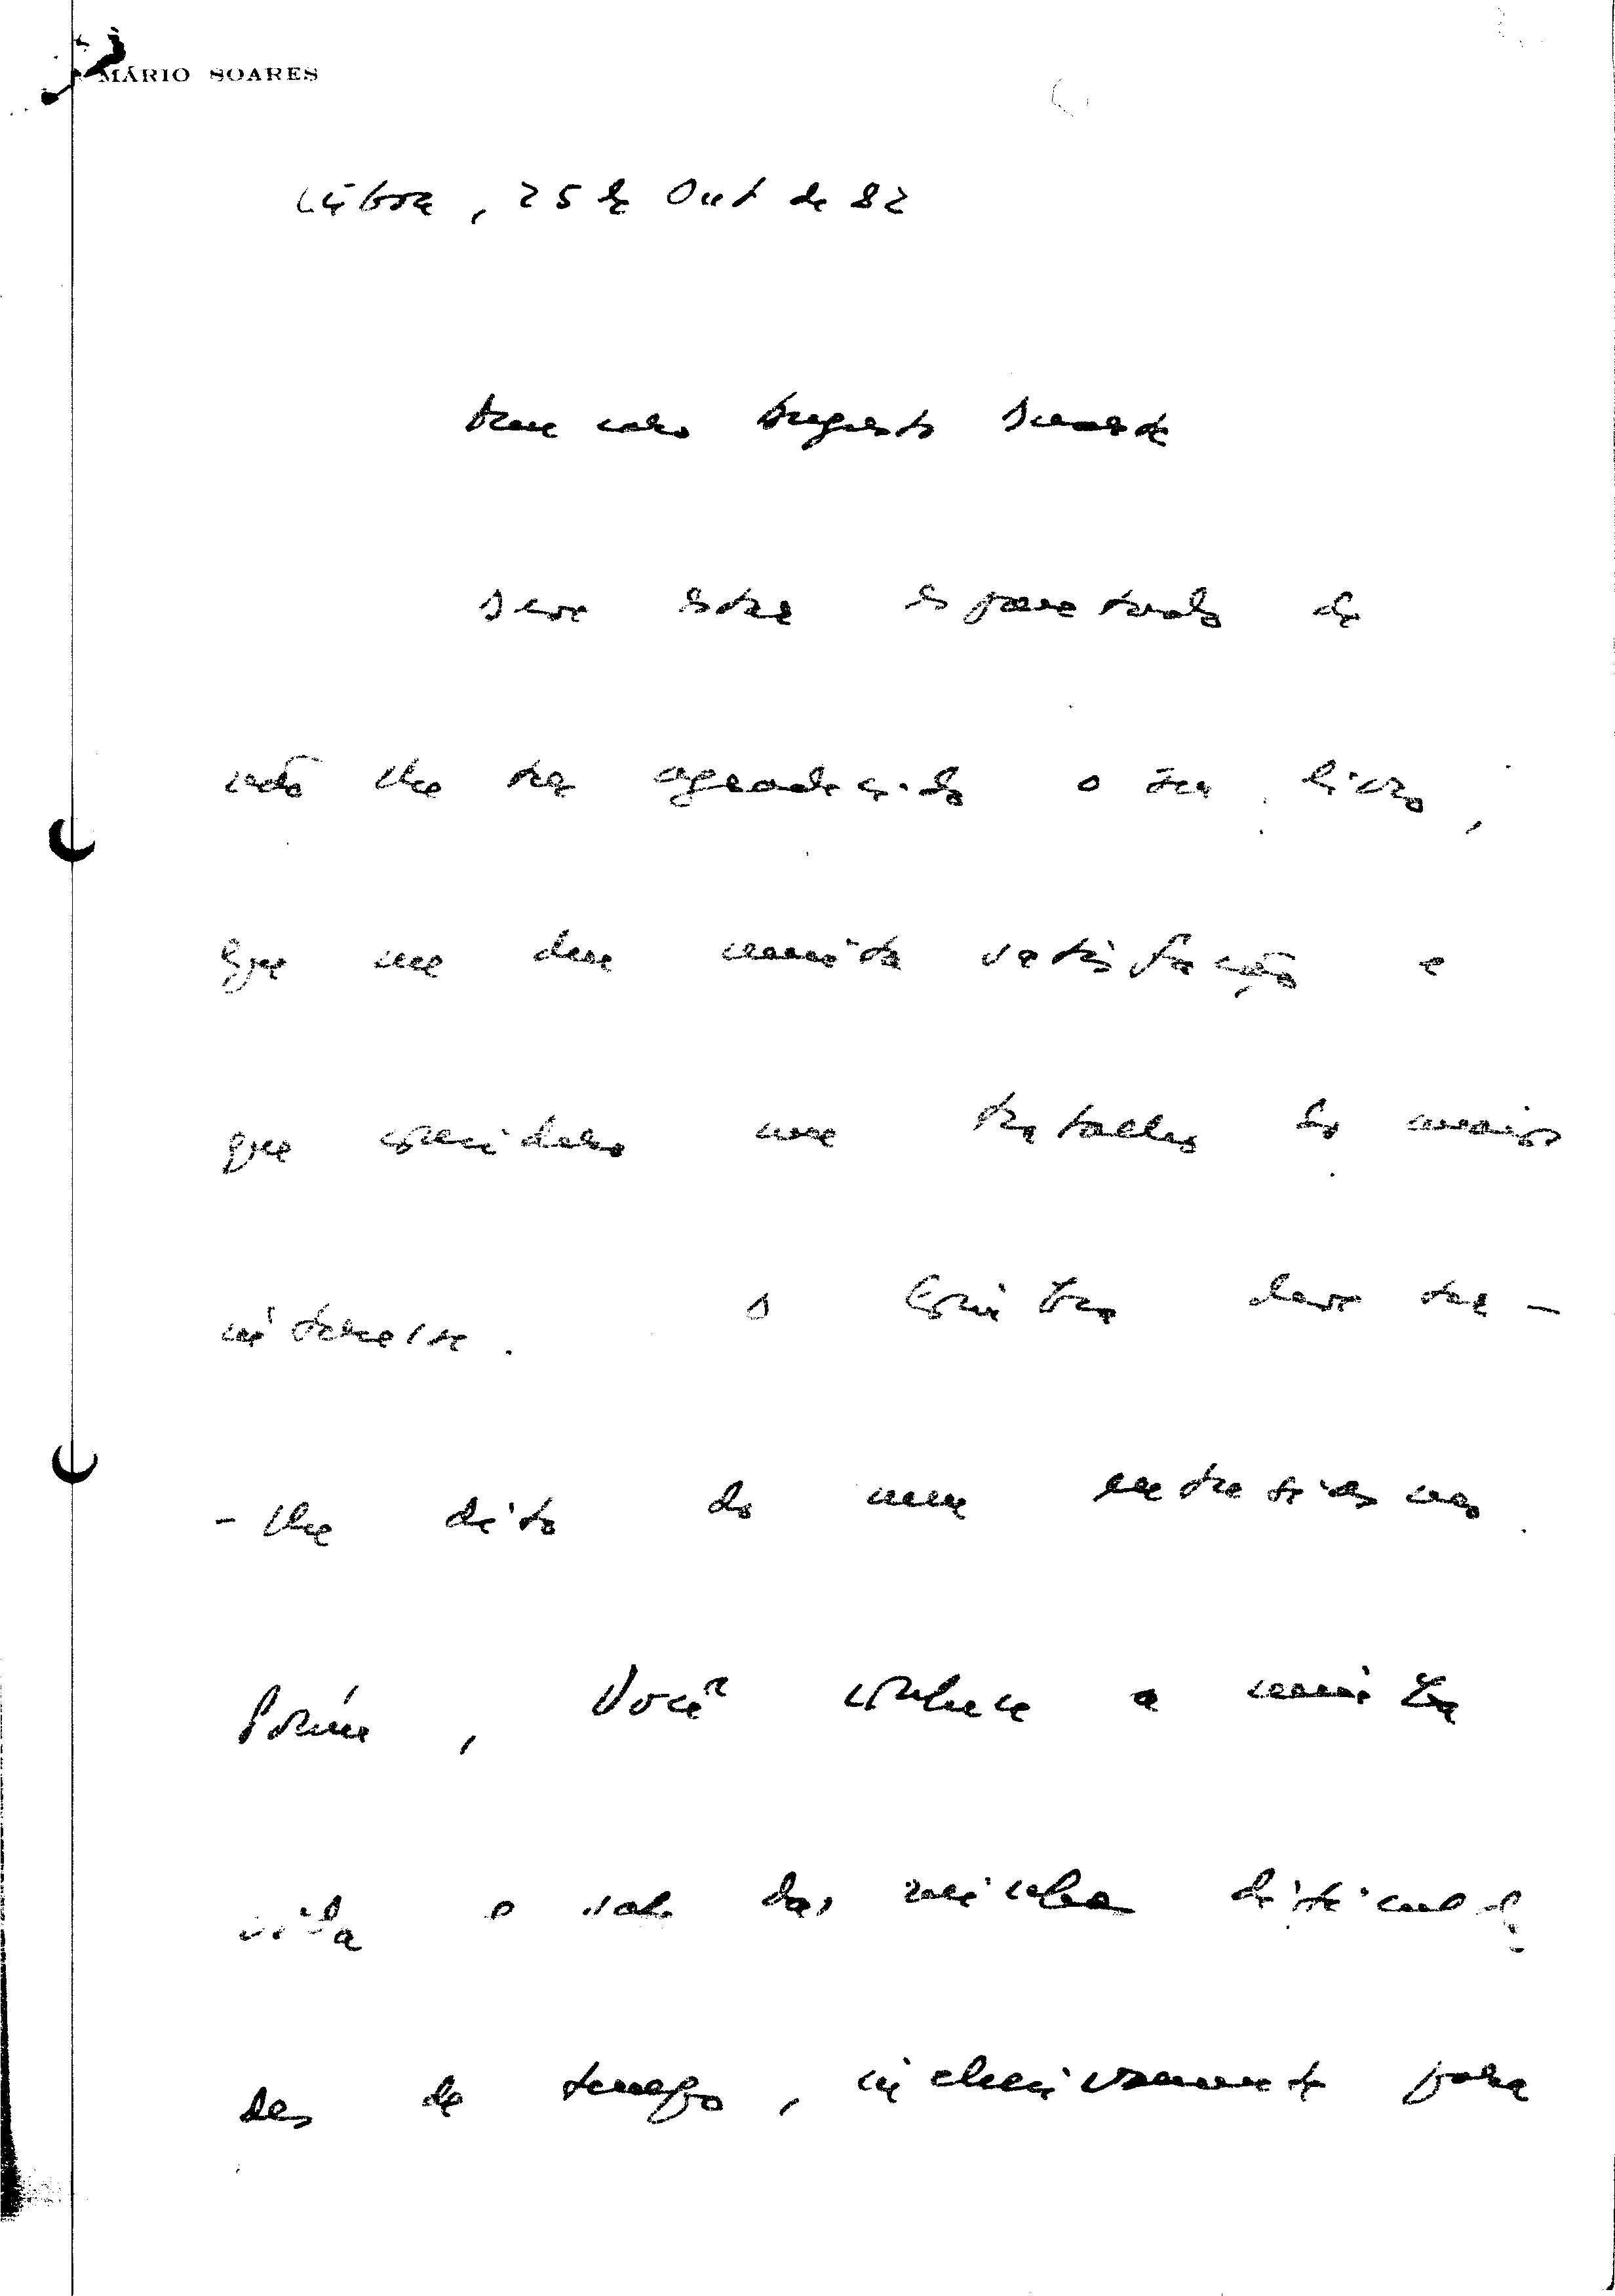 MÁRIO SOARES
Lisboa, 25 de Out de 82
Meu caro Augusto
Deve estar espantado de
não lhe ter agradecido o seu livro,
que me deu muita satisfação e
que considero um trabalho do maior
interesse. O deve ter-
-lhe dito do meu entusiasmo.
Porém, Você conhece a minha
vida e sabe das minhas dificulda-
des de tempo, inclusivamente para